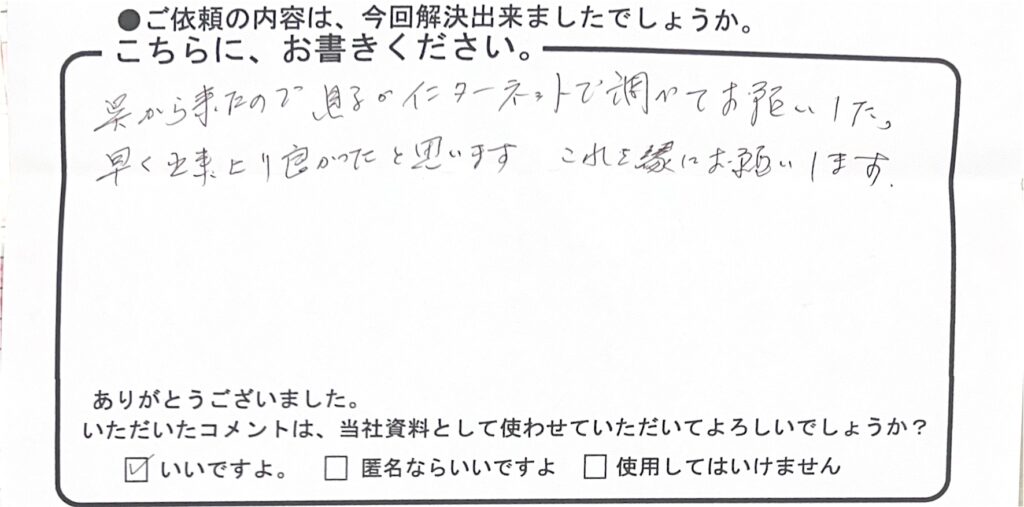 ●ご依頼の内容は、今回解決出来ましたでしょうか。
こちらに、お書きください。
呉から来たので息子がインターネットで調べてお願いした。
早く出来上り良かったと思います これを縁にお願いします.
ありがとうございました。
いただいたコメントは、当社資料として使わせていただいてよろしいでしょうか？
☑ いいですよ。 □ 匿名ならいいですよ □ 使用してはいけません